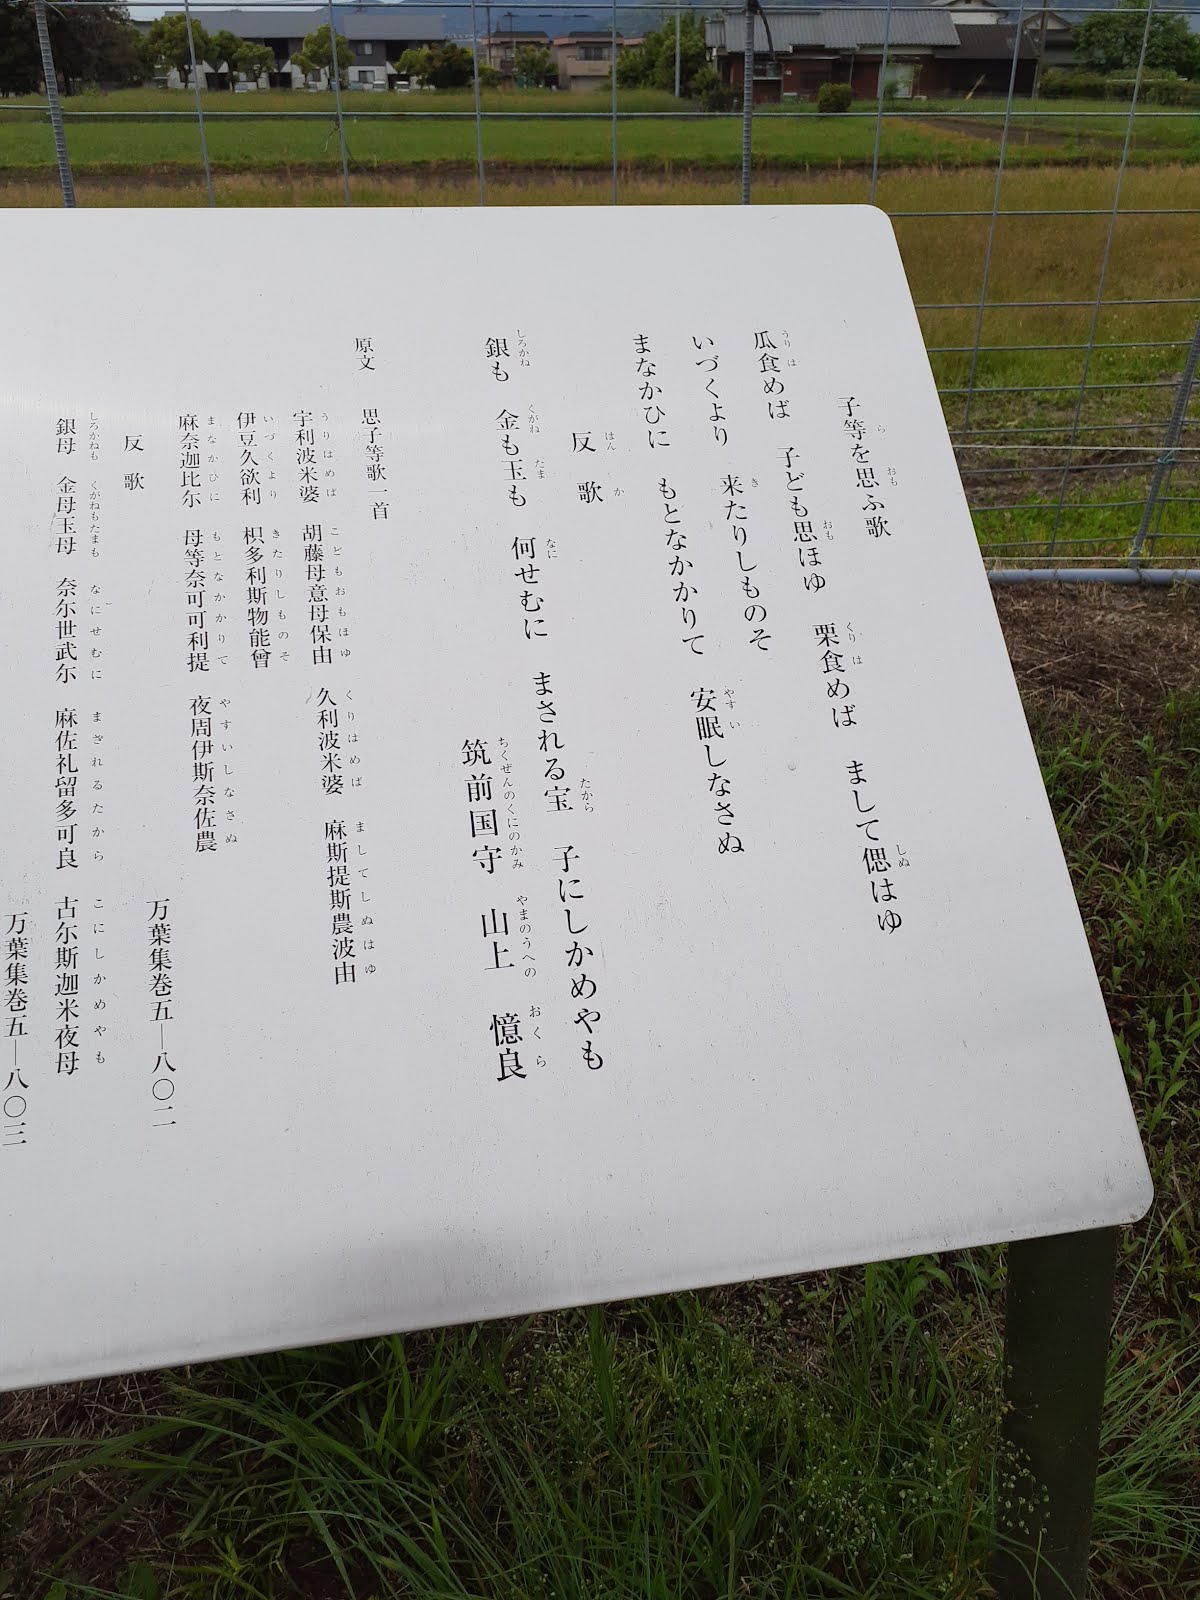 子等を思ふ歌
瓜食めば　子ども思ほゆ　栗食めば　まして偲はゆ
いづくより　来たりしものそ
まなかひに　もとなかかりて　安眠しなさぬ
反歌
銀も　金も玉も　何せむに　まされる宝　子にしかめやも
筑前国守　山上　憶良
原文　思子等歌一首
宇利波米婆　胡藤母意母保由　久利波米婆　麻斯提斯農波由
伊豆久欲利　枳多利斯物能曾
麻奈迦比尓　母等奈可可利提　夜周伊斯奈佐農
万葉集巻五―八〇二
反歌
銀母　金母玉母　奈尓世武尓　麻佐礼留多可良　古尓斯迦米夜母
万葉集巻五―八〇三